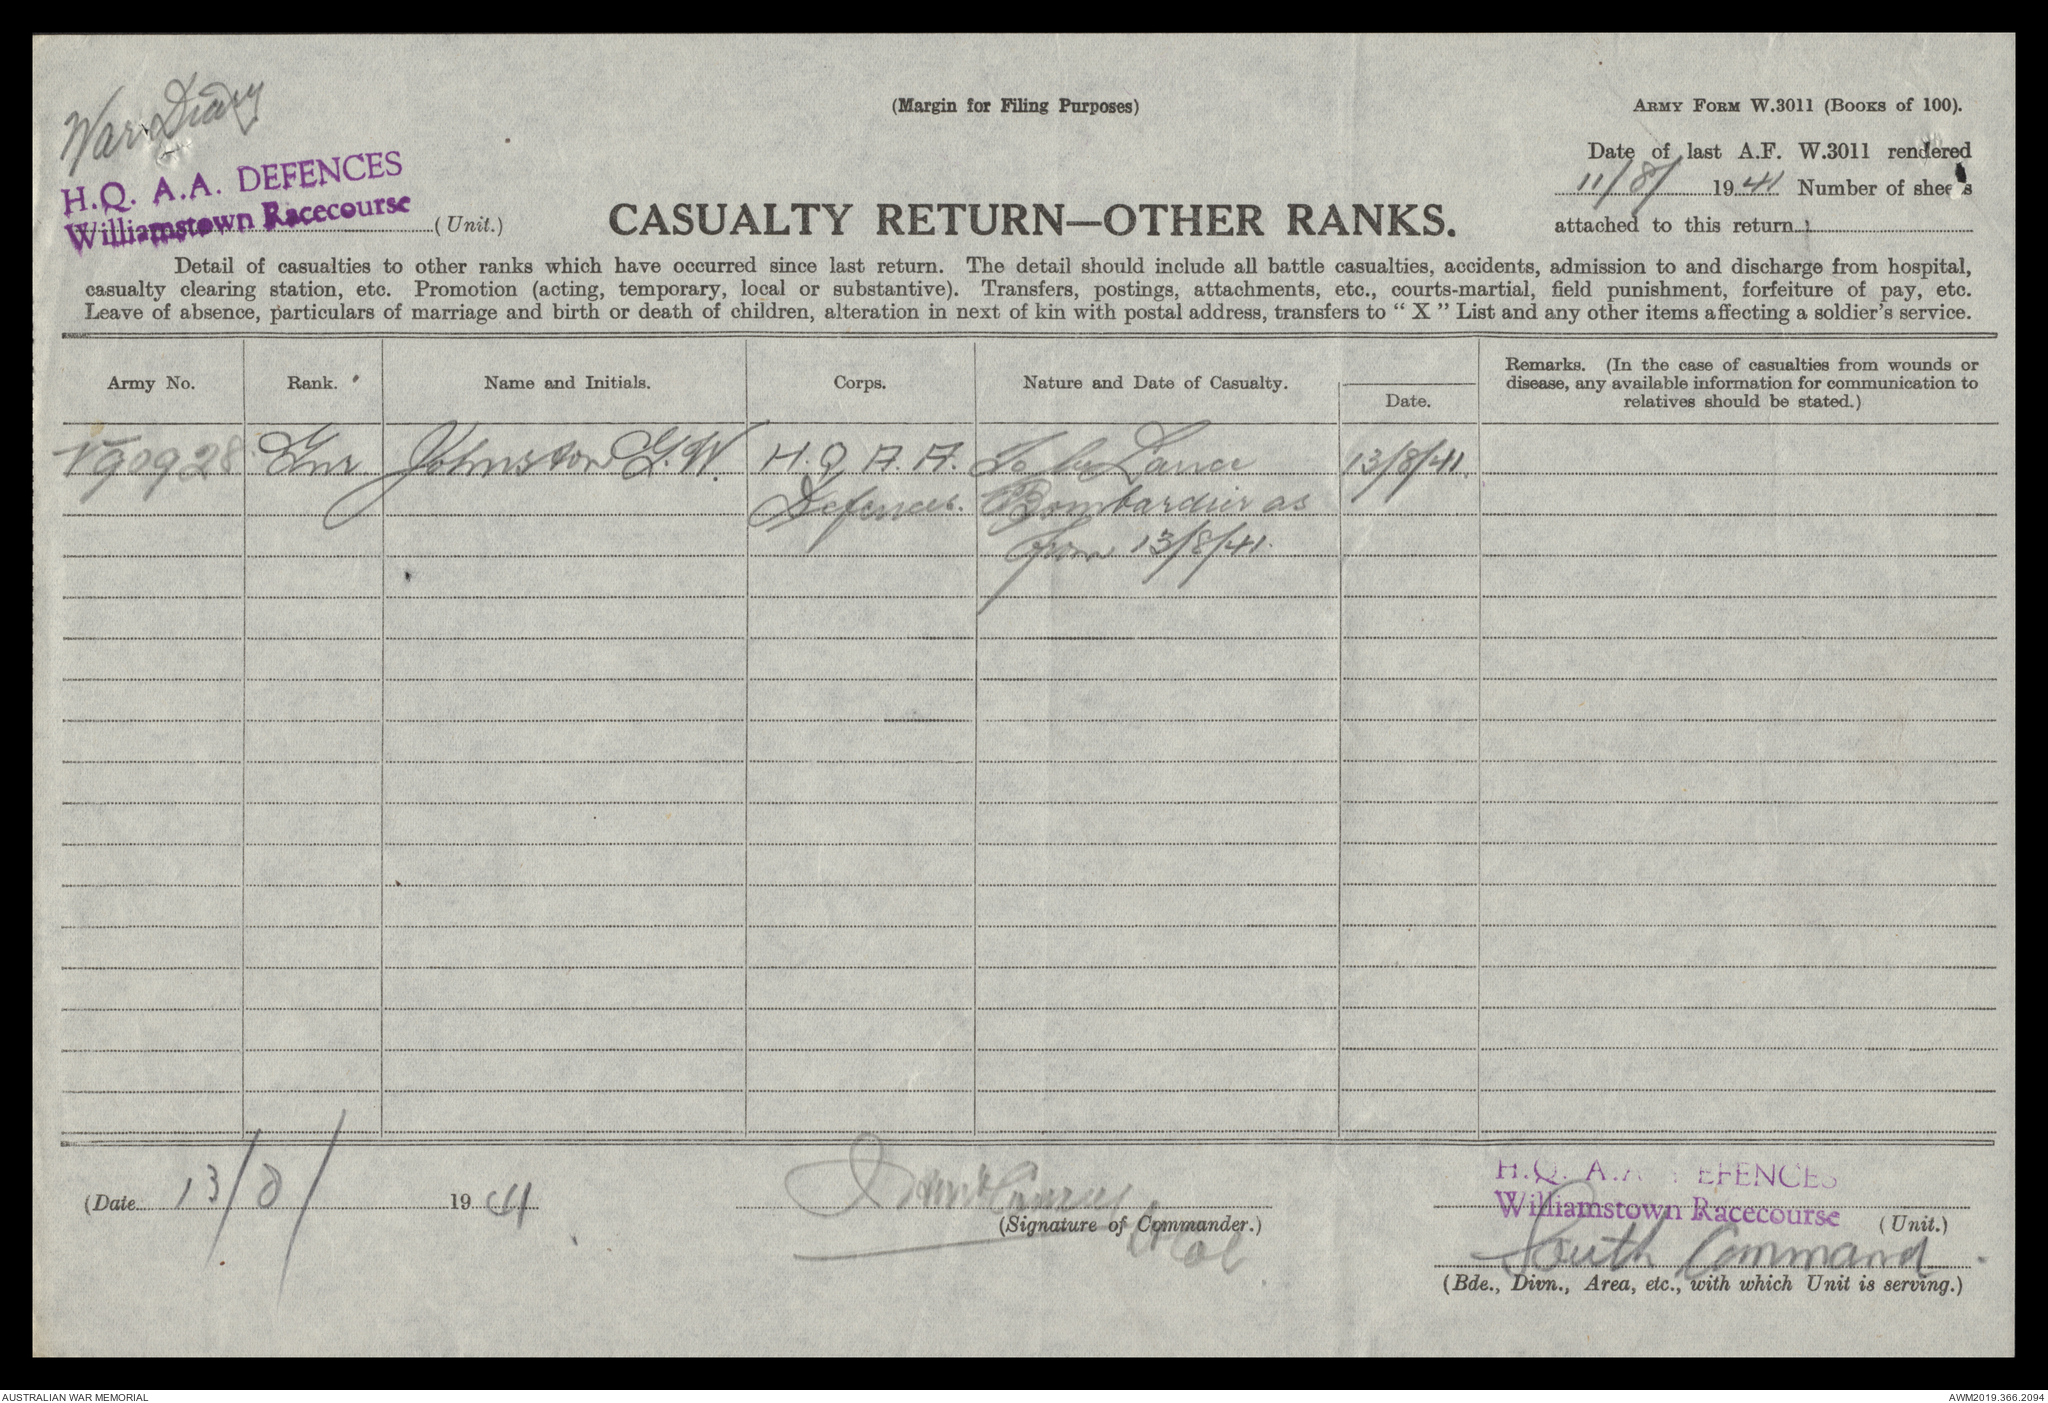 War Diary
(Margin for Filing Purposes)
ARMY FORM W.3011 (BOOKS of 100).
H.Q. A.A. DEFENCES
Williamstown Racecourse (Unit.)
CASUALTY RETURN—OTHER RANKS.
Date of last A.F. W.3011 rendered
11/8/ 1941 Number of sheets
attached to this return 1
Detail of casualties to other ranks which have occurred since last return. The detail should include all battle casualties, accidents, admission to and discharge from hospital,
casualty clearing station, etc. Promotion (acting, temporary, local or substantive). Transfers, postings, attachments, etc., courts-martial, field punishment, forfeiture of pay, etc.
Leave of absence, particulars of marriage and birth or death of children, alteration in next of kin with postal address, transfers to “ X ” List and any other items affecting a soldier’s service.
Army No. Rank. Name and Initials. Corps. Nature and Date of Casualty. Date. Remarks. (In the case of casualties from wounds or
disease, any available information for communication to
relatives should be stated.)
V90928 Gnr. Johnston G.W. H.Q. A.A. To be Lance 13/8/41.
Defences. Bombardier as
from 13/8/41.
(Date 13/8/ 1941
(Signature of Commander.)
Lt Col.
H.Q. A.A. DEFENCES
Williamstown Racecourse (Unit.)
South Command.
(Bde., Divn., Area, etc., with which Unit is serving.)
AUSTRALIAN WAR MEMORIAL
AWM2019.366.2094